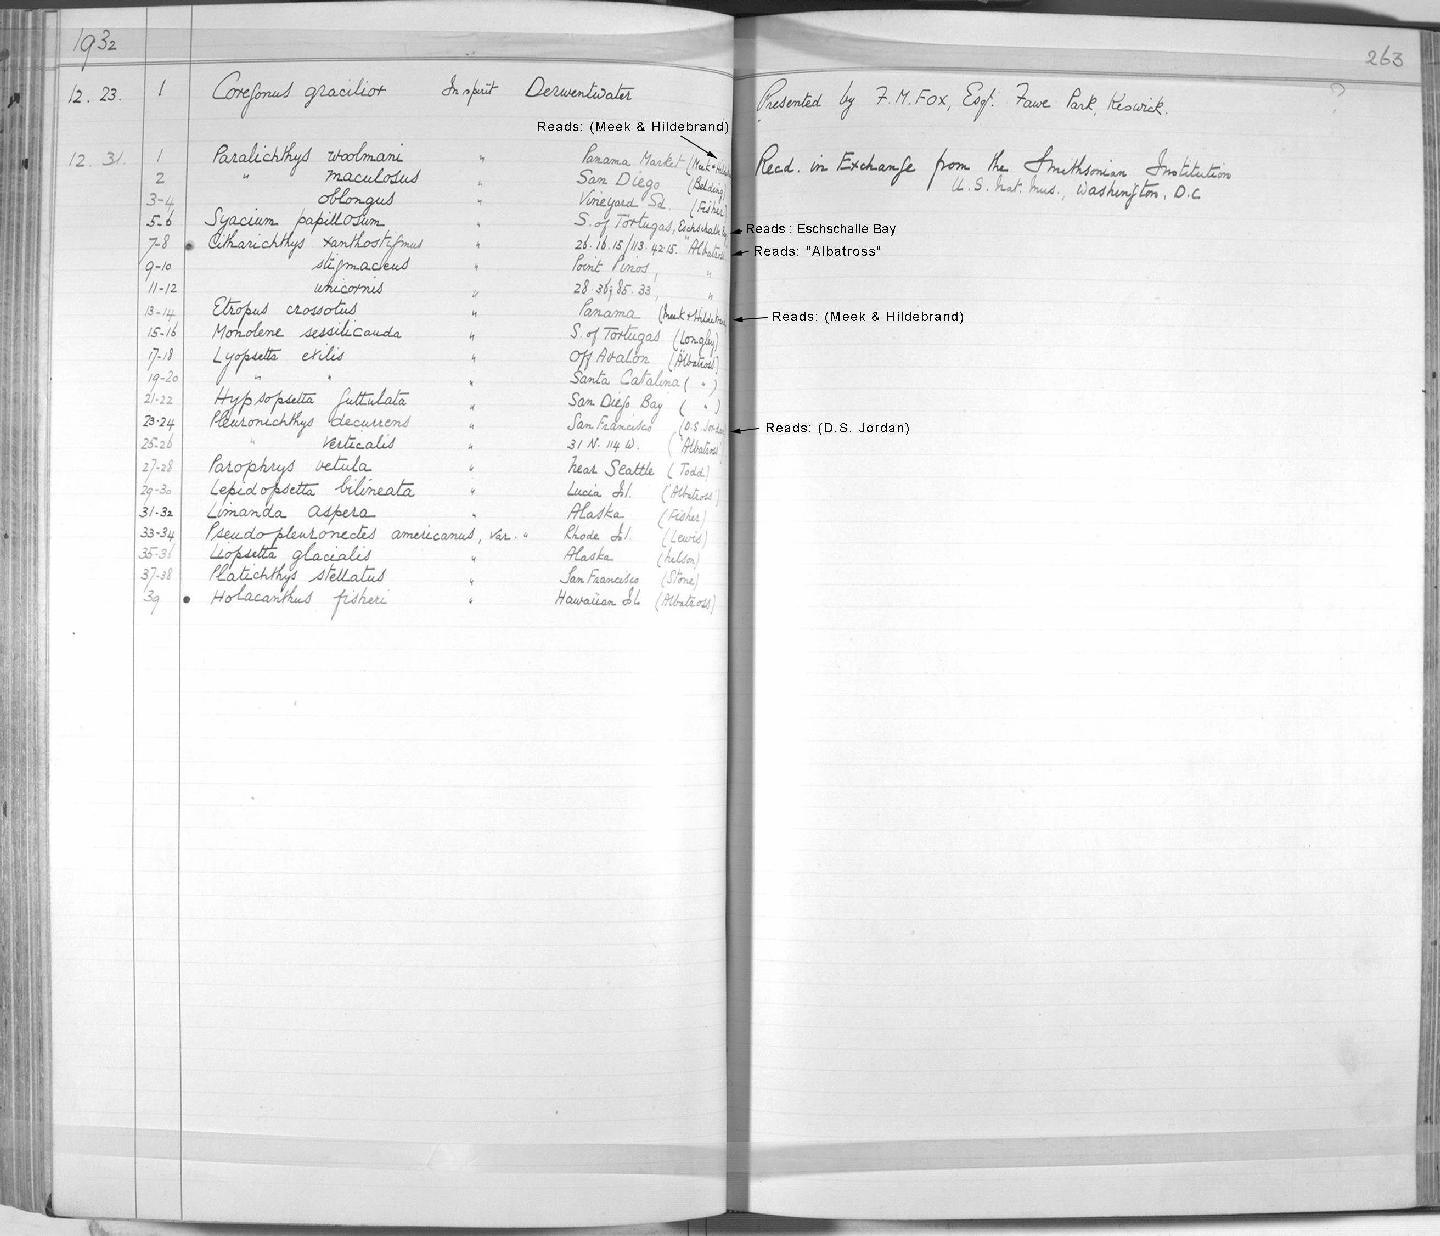 1932
263
12. 23. 1 Coregonus gracilior In spirit Derwentwater Presented by F.M. Fox, Esqr. Fawe Park, Keswick. ?
Reads: (Meek & Hildebrand)
12. 31. 1 Paralichthys woolmani " Panama Market (Meek & Hilde Recd. in Exchange from the Smithsonian Institution
2 " maculosus " San Diego (Belding) U.S. Nat. Mus., Washington, D.C
3-4 oblongus " Vineyard Sd. (Fisher)
5-6 Syacium papillosum " S. of Tortugas, Eschschalle Bay Reads: Eschschalle Bay
7-8 Citharichthys xanthostigmus " 26.16.15/113.42.15. "Albatross Reads: "Albatross"
9-10 stigmaeus " Point Pinos, "
11-12 unicornis " 28.36; 85.33, "
13-14 Etropus crossotus " Panama (Meek & Hildebran Reads: (Meek & Hildebrand)
15-16 Monolene sessilicauda " S. of Tortugas (Longley)
17-18 Lyopsetta exilis " Off Avalon ("Albatross)
19-20 " " " Santa Catalina ( " )
21-22 Hypsopsetta guttulata " San Diego Bay ( " )
23-24 Pleuronichthys decurrens " San Francisco (D.S. Jordan Reads: (D.S. Jørdan)
25-26 " verticalis " 31 N. 114 W. ("Albatross"
27-28 Parophrys vetula " near Seattle (Todd)
29-30 Lepidopsetta bilineata " Lucia Isl. ("Albatross")
31-32 Limanda aspera " Alaska (Fisher)
33-34 Pseudopleuronectes americanus, var. " Rhode Isl. (Lewis)
35-36 Liopsetta glacialis " Alaska (Nelson)
37-38 Platichthys stellatus " San Francisco (Stone)
39 Holacanthus fisheri " Hawaiian Isl. (Albatross)